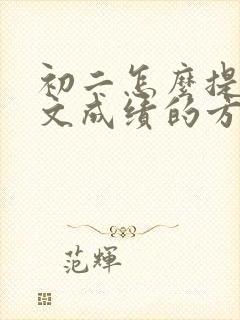 初二怎麼提
文成绩的方
范輝